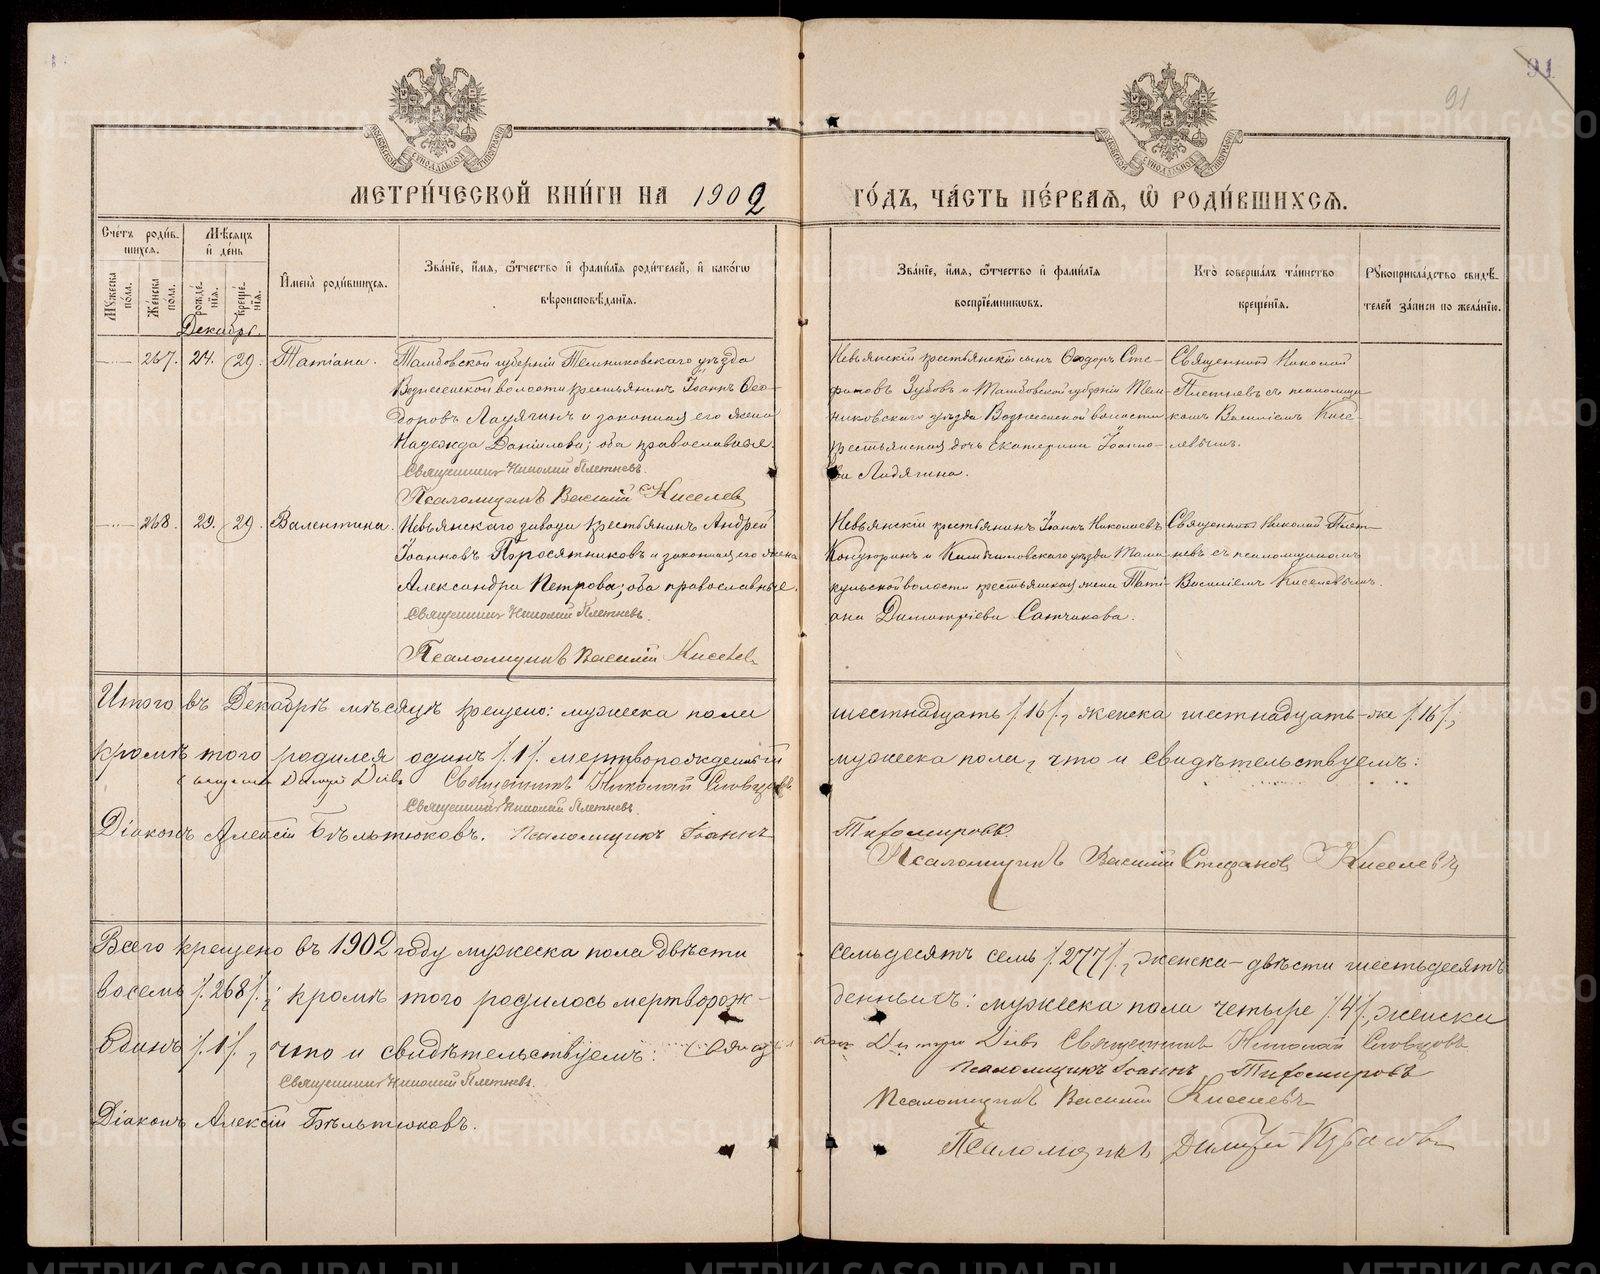 91
91
МЕТРИ́ЧЕСКОЙ КНИ́ГИ НА 1902 ГО́ДЪ, ЧА́СТЬ ПЕ́РВАЯ, Ѡ РОДИ́ВШИХСЯ.
Сче́тъ роди́в-
шихся.
Му́жеска по́ла.
Же́нска по́ла.
Мѣ́сяцъ
и̂ де́нь
рожде́-
нія.
креще́-
нія.
И̂мена̀ роди́вшихся.
Зва́ніе, и̂́мя, ѻ̂́тчество и̂ фами́лія роди́телей, и̂ како́гѡ
вѣроисповѣ́данія.
Зва́ніе, и̂́мя, ѻ̂́тчество и̂ фами́лія
воспріе́мникѡвъ.
Кто̀ соверша́лъ та́инство
креще́нія.
Рꙋкоприкла́дство свидѣ́-
телей за́писи по жела́нію.
Декабрь.
267. 24. 29. Татіана.
Тамбовской губерніи Темниковскаго уѣзда
Вознесенской волости крестьянинъ Іоаннъ Ѳео-
доровъ Лидягинъ и законная его жена
Надежда Даніилова; оба православные.
Священникъ Николай Плетневъ.
Псаломщикъ Василій Киселевъ
Невьянскій крестьянскій сынъ Ѳеодоръ Сте-
фановъ Зубовъ и Тамбовской губерніи Тем-
никовскаго уѣзда Вознесенской волости
крестьянская дочь Екатерина Іоанно-
ва Лидягина.
Священникъ Николай
Плетневъ съ псаломщи-
комъ Василіемъ Кисе-
левымъ.
268. 29. 29. Валентина.
Невьянскаго завода крестьянинъ Андрей
Іоанновъ Поросятниковъ и законная его жена
Александра Петрова; оба православные.
Священникъ Николай Плетневъ.
Псаломщикъ Василій Киселевъ
Невьянскій крестьянинъ Іоаннъ Николаевъ
и Камышловскаго уѣзда Тама-
кульской волости крестьянская жена Тати-
ана Димитріева Сатчикова.
Священникъ Николай Плет-
невъ съ псаломщикомъ
Василіемъ Киселевымъ.
Итого въ Декабрѣ мѣсяцѣ крещено: мужеска пола шестнадцать /.16/., женска шестнадцать-же /.16/.;
кромѣ того родился одинъ /.1/. мертворожденный мужеска пола, что и свидѣтельствуемъ:
Священникъ Николай Словцовъ
Священникъ Николай Плетневъ.
Діаконъ Алексій Бѣльтюковъ. Псаломщикъ Іоаннъ Тихомировъ
Псаломщикъ Василій Стефановъ Киселевъ
Всего крещено въ 1902 году мужеска пола двѣсти семьдесятъ семь /.277/., женска-двѣсти шестьдесятъ
восемь /.268/.; кромѣ того родилось мертворож-денныхъ: мужеска пола четыре /.4/., женска
одинъ /.1/., что и свидѣтельствуемъ: Священникъ Николай Словцовъ
Священникъ Николай Плетневъ.
Псаломщикъ Іоаннъ Тихомировъ
Псаломщикъ Василій Киселевъ
Діаконъ Алексій Бѣльтюковъ.
Псаломщикъ Димитрій
METRIKI.GASO-URAL.RU